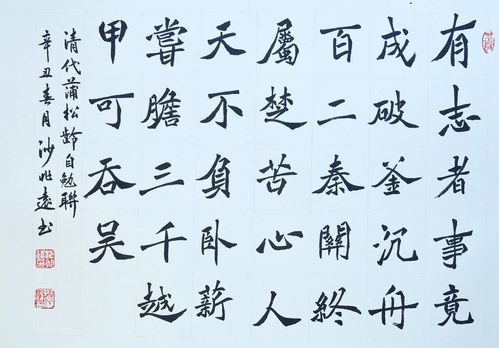 有志者事竟
成破釜沉舟
百二秦關終
屬楚苦心人
天不負卧薪
嘗膽三千越
甲可吞吴
清代蒲松齡自勉聯
辛丑春月沙兆遠书